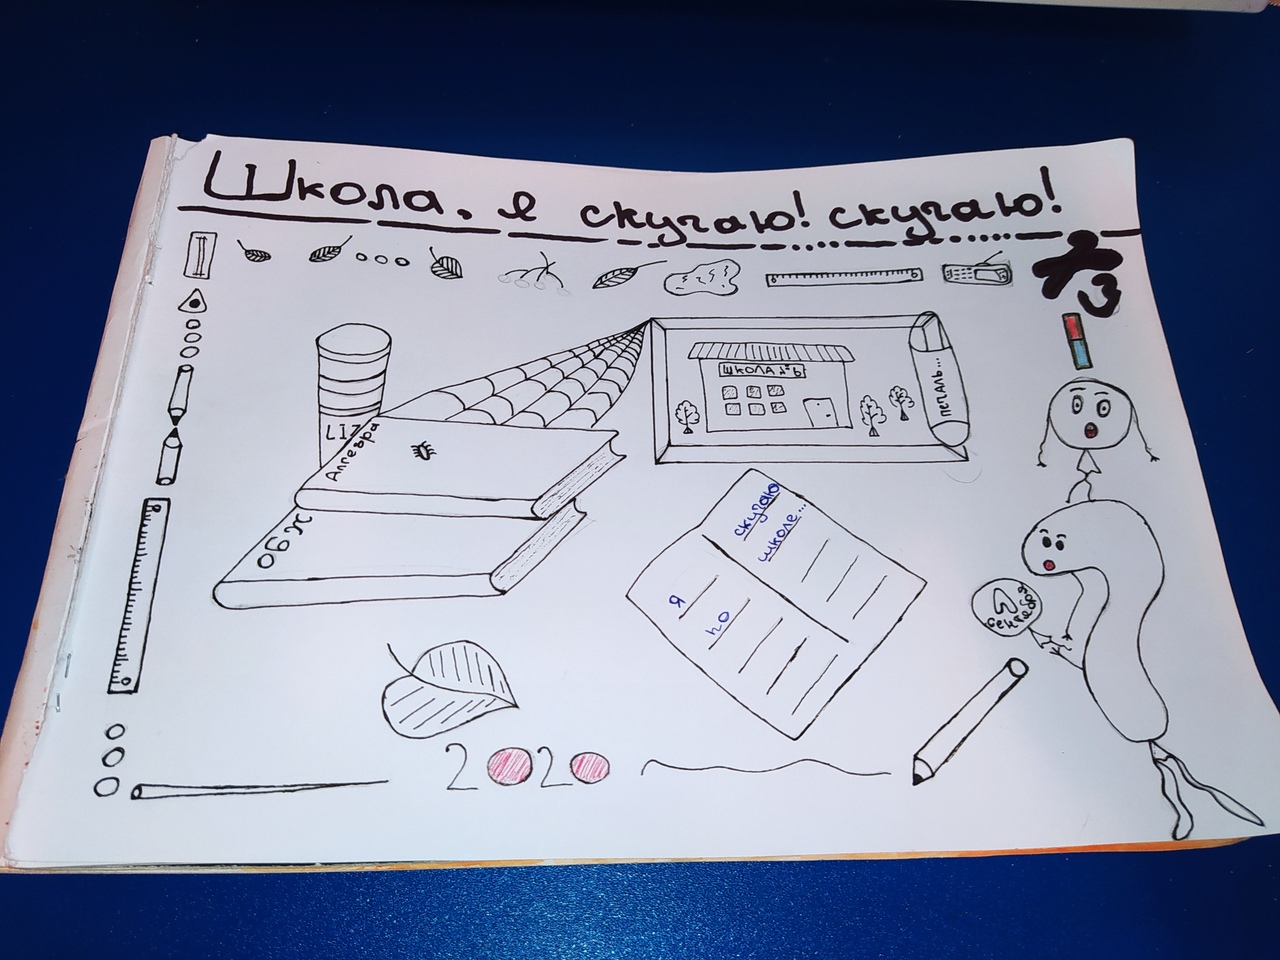 Школа, я скучаю! скучаю!
ШКОЛА №6
печаль...
LIZ
Алгебра
ОБЖ
скучаю
школе...
я
по
сентября
2020